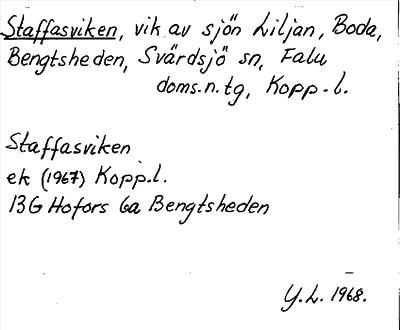 Staffasviken, vik av sjön Liljan, Boda,
Bengtsheden, Svärdsjö sn, Falu
doms.n.tg, Kopp.l.
Staffasviken
ek (1967) Kopp.l.
13G Hofors 6a Bengtsheden
Y.L. 1968.